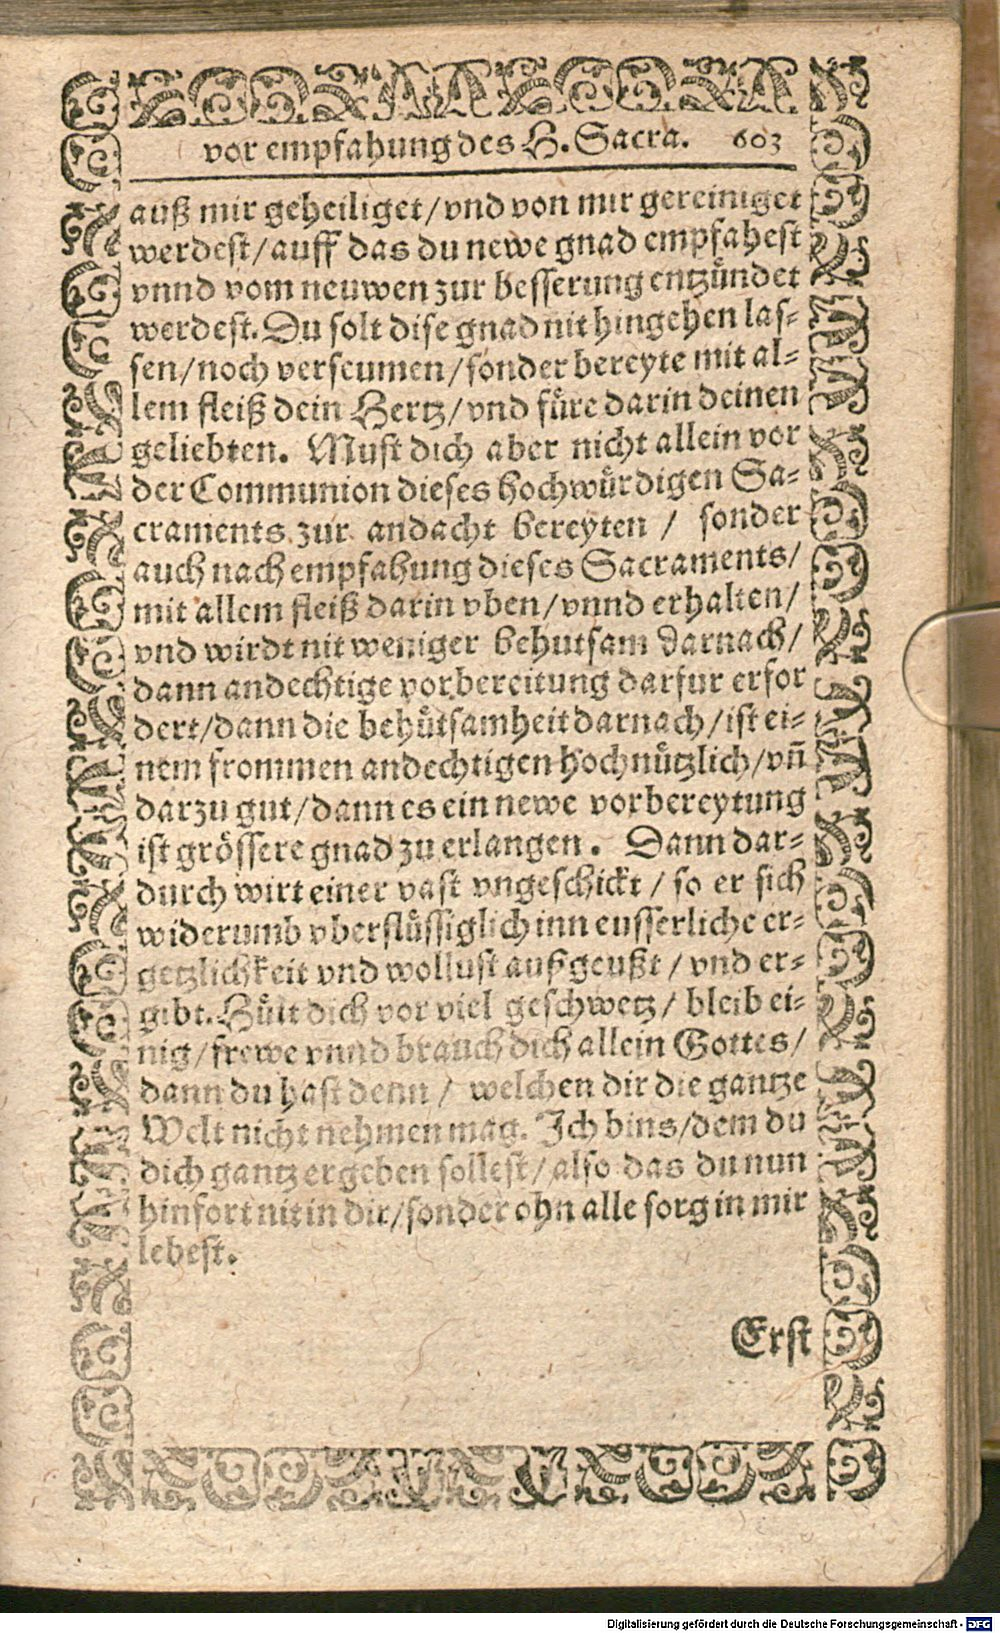 vor empfahung des H. Sacra. 603
auß mir geheiliget/vnd von mir gereiniget
werdest/auff das du newe gnad empfahest
vnnd vom neuwen zur besserung entzündet
werdest. Du solt dise gnad nit hingehen las-
sen/noch verseumen/sonder bereyte mit al-
lem fleiß dein Hertz/vnd füre darin deinen
geliebten. Must dich aber nicht allein vor
der Communion dieses hochwürdigen Sa-
craments zur andacht bereyten / sonder
auch nach empfahung dieses Sacraments/
mit allem fleiß darin vben/vnnd erhalten/
vnd wirdt nit weniger behutsam darnach/
dann andechtige vorbereitung darfur erfor
dert/dann die behůtsamheit darnach/ist ei-
nem frommen andechtigen hochnützlich/vn̄
darzu gut/dann es ein newe vorbereytung
ist grössere gnad zu erlangen. Dann dar-
durch wirt einer vast vngeschickt / so er sich
widerumb vberflüssiglich inn eusserliche er-
getzlichkeit vnd wollust außgeußt / vnd er-
gibt. Hüit dich vor viel geschwetz/ bleib ei-
nig/frewe vnnd brauch dich allein Gottes/
dann du hast denn / welchen dir die gantze
Welt nicht nehmen mag. Ich bins/dem du
dich gantz ergeben sollest/also das du nun
hinfort nit in dir/sonder ohn alle sorg in mir
lebest.
Erst
Digitalisierung gefördert durch die Deutsche Forschungsgemeinschaft - DFG